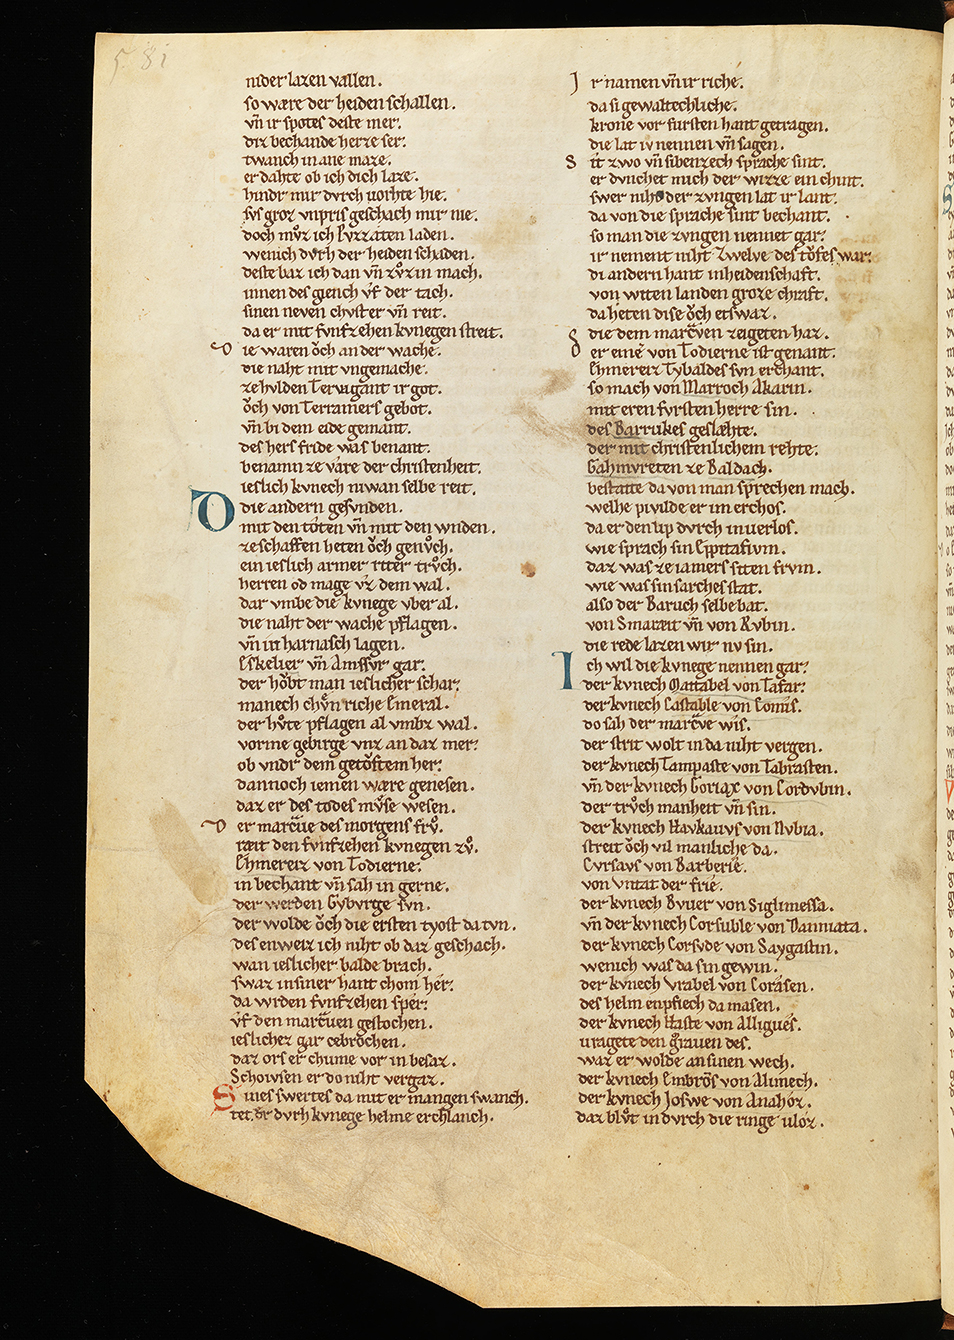 581
nider lazen vallen.
so wære der heiden schallen.
vn̄ ir spotes deste mer.
diz bechande herze ser.
twanch in ane maze.
er dahte ob ich dich laze.
hindr mir dvrch vorhte hie.
svs groz vnpris geschach mir nie.
doch mv̊z ich kyrzaten laden.
wenich dvrh der heiden schaden.
deste baz ich dan vn̄ zv̊zin mach.
innen des giench vf der tach.
sinen neven chvster vn̄ reit.
da er mit fvnfzehen kvnegen streit.
Die waren ŏch an der wache.
die naht mit vngemache.
ze hvlden Tervigant ir got.
ŏch von Terramers gebot.
vn̄ bi dem eide gemant.
des hers fride was benant.
benamn ze vare der christenheit.
ieslich kvnech niwan selbe reit.
Die andern gesvnden.
mit den toten vn̄ mit den wnden.
ze schaffen heten ŏch genv̊ch.
ein ieslich armer riter trv̊ch.
herren od mage vz dem wal.
dar vmbe die kvnege vber al.
die naht der wache pflagen.
vn̄ in harnasch lagen.
Eskelier vn̄ Amssvr gar.
der hŏbt man ieslicher schar.
manech chv̊n riche Emeral.
der hv̊te pflagen al vmbz wal.
vorme gebirge vnz an daz mer.
ob vndr dem getŏftem her.
dannoch iemen wære genesen.
daz er des todes mv̊se wesen.
Der marcůe des morgens frv̊.
ræit den fvnfzehen kvnegen zv̊.
Ehmereiz von Todierne.
in bechant vn̄ sah in gerne.
der werden Gyburge svn.
der wolde ŏch die ersten tyost da tvn.
des enweiz ich niht ob daz geschach.
wan ieslicher balde brach.
swaz in siner hant chom her.
da wrden fvnfzehen sper.
vf den marcuen gestochen.
ieslichez gar cebrochen.
daz ors er chume vor in besaz.
Schoiwsen er do niht vergaz.
Sines swertes da mit er mangen swanch.
tet. dr dvrh kvnege helme erchlanch.
Ir namen vn̄ ir riche.
da si gewaltechliche.
krone vor fursten hant getragen.
die lat iv nennen vn̄ sagen.
Sit zwo vn̄ sibenzech sprache sint.
er dvnchet mich der wizze ein chint.
swer niht der zvngen lat ir lant.
da von die sprache sint bechant.
so man die zvngen nennet gar.
ir nement niht zwelve des tŏfes war.
di andern hant in heidenschaft.
von witen landen groze chraft.
da heten dise ŏch etswaz.
die dem marcůen zeigeten haz.
Der eine von Todierne ist genant.
Ehmereiz Tybaldes svn erchant.
so mach von Marroch Akarin.
mit eren fvrsten herre sin.
des Barrukes geslæhte.
der mit christenlichem rehte.
Gahmvreten ze Baldach.
bestatte da von man sprechen mach.
welhe pivilde er im erchos.
da er den lip dvrch in verlos.
wie sprach sin Epitafivm.
daz was ze iamers siten frvm.
wie was sin sarches stat.
also der Baruch selbe bat.
von Smarait vn̄ von Rvbin.
die rede lazen wir nv sin.
Ich wil die kvnege nennen gar.
der kvnech Mattabel von Tafar.
der kvnech Castable von Comis.
do sah der marcůe wis.
der strit wolt in da niht vergen.
der kvnech Tampaste von Tabrasten.
vn̄ der kvnech Goriax von Cordvbin.
der trv̊ch manheit vn̄ sin.
der kvnech Havkauvs von Nvbia.
streit ŏch vil manliche da.
Cvrsavs von Barberie.
von Vntat der frie.
der kvnech Bvuer von Siglimessa.
vn̄ der kvnech Corsuble von Danniata.
der kvnech Corsvde von Saygastin.
wenich was da sin gewin.
der kvnech Vrabel von Corasen.
des helm enpfiech da masen.
der kvnech Haste von Alligues.
vragete den grauen des.
waz er wolde an sinen wech.
der kvnech Embros von Alimech.
der kvnech Joswe von Anahoz.
daz blv̊t in dvrch die ringe vloz.